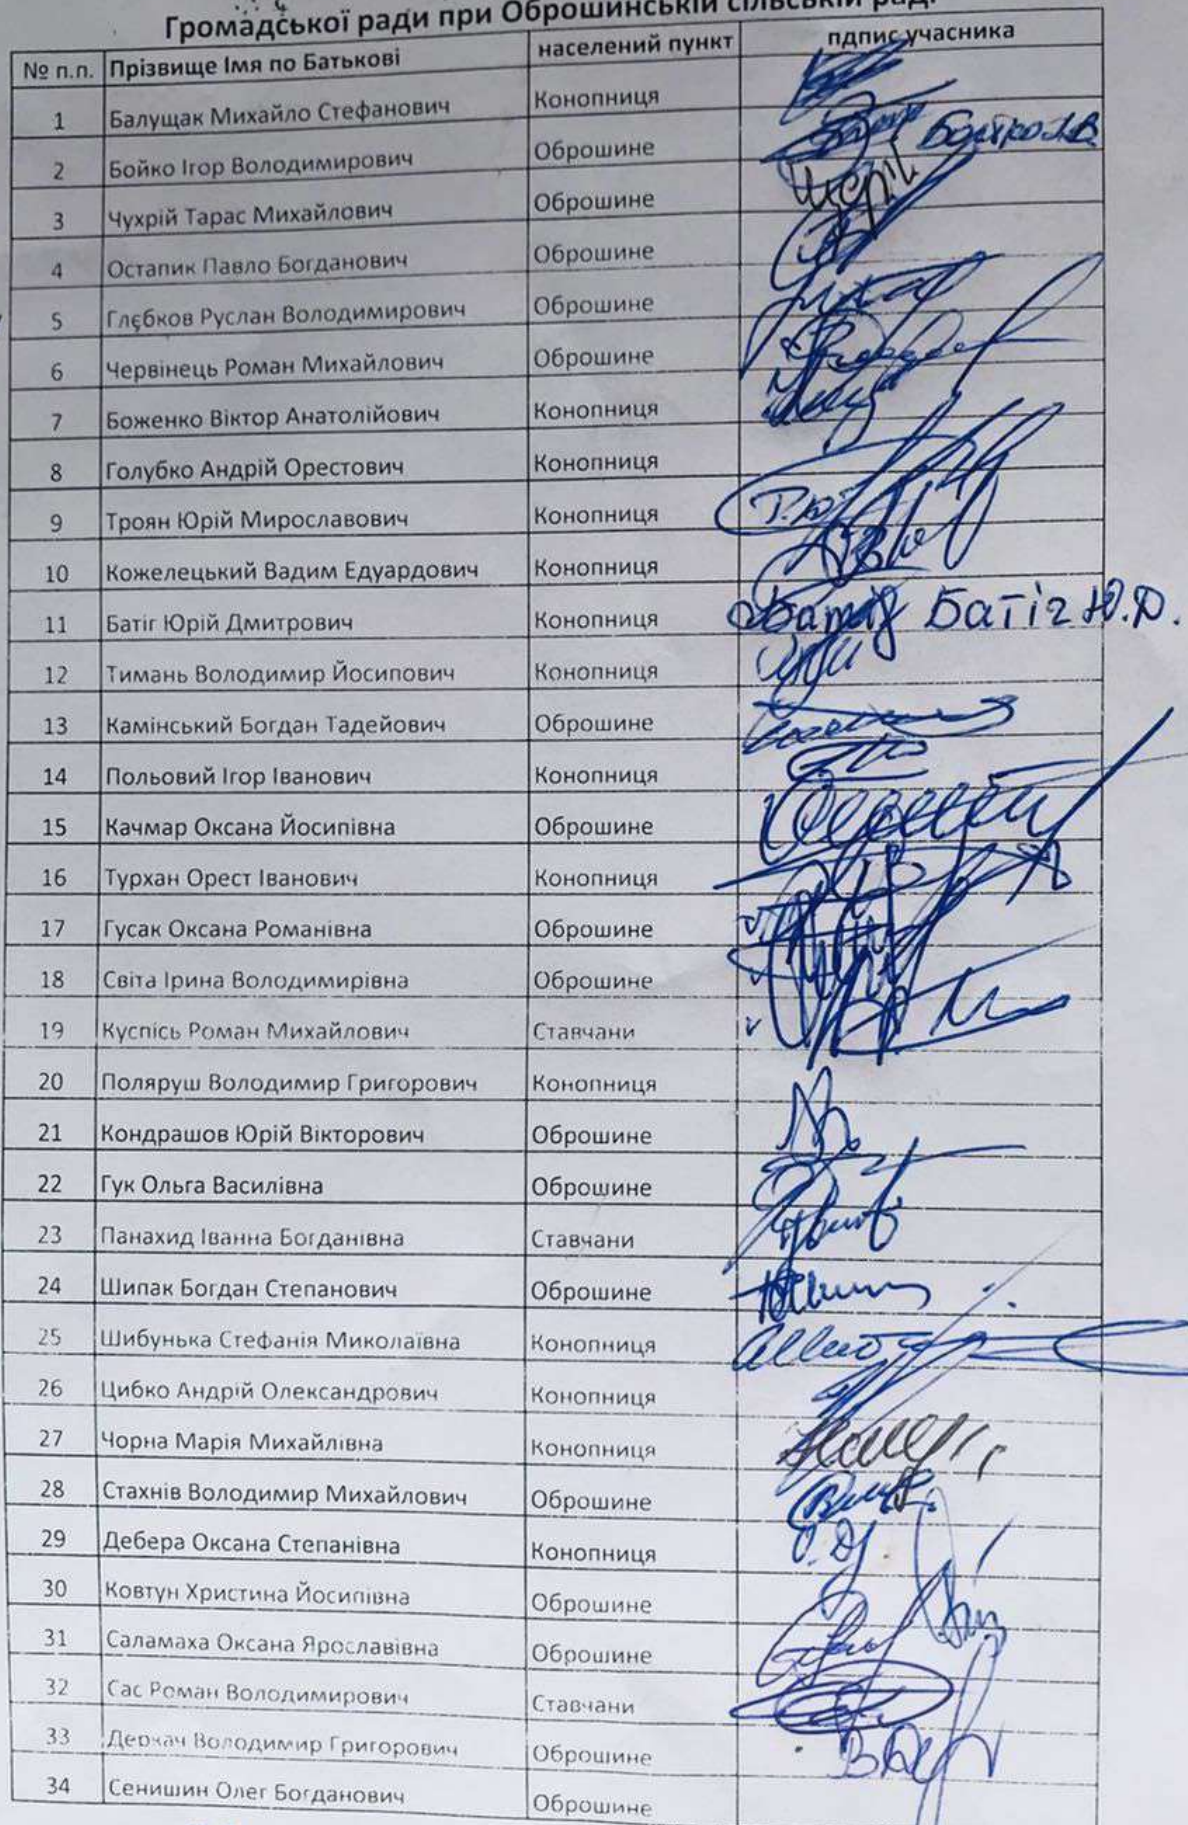 Громадської ради при Оброшинській сільській раді
№ п.п. Прізвище Імя по Батькові населений пункт пдпис учасника
1 Балущак Михайло Стефанович Конопниця
2 Бойко Ігор Володимирович Оброшине Бойко І.В.
3 Чухрій Тарас Михайлович Оброшине
4 Остапик Павло Богданович Оброшине
5 Глєбков Руслан Володимирович Оброшине
6 Червінець Роман Михайлович Оброшине
7 Боженко Віктор Анатолійович Конопниця
8 Голубко Андрій Орестович Конопниця
9 Троян Юрій Мирославович Конопниця
10 Кожелецький Вадим Едуардович Конопниця
11 Батіг Юрій Дмитрович Конопниця Батіг Батіг Ю.Д.
12 Тимань Володимир Йосипович Конопниця
13 Камінський Богдан Тадейович Оброшине
14 Польовий Ігор Іванович Конопниця
15 Качмар Оксана Йосипівна Оброшине
16 Турхан Орест Іванович Конопниця
17 Гусак Оксана Романівна Оброшине
18 Світа Ірина Володимирівна Оброшине
19 Куспісь Роман Михайлович Ставчани
20 Поляруш Володимир Григорович Конопниця
21 Кондрашов Юрій Вікторович Оброшине
22 Гук Ольга Василівна Оброшине
23 Панахид Іванна Богданівна Ставчани
24 Шипак Богдан Степанович Оброшине
25 Шибунька Стефанія Миколаївна Конопниця
26 Цибко Андрій Олександрович Конопниця
27 Чорна Марія Михайлівна Конопниця
28 Стахнів Володимир Михайлович Оброшине
29 Дебера Оксана Степанівна Конопниця
30 Ковтун Христина Йосипівна Оброшине
31 Саламаха Оксана Ярославівна Оброшине
32 Сас Роман Володимирович Ставчани
33 Деркач Володимир Григорович Оброшине
34 Сенишин Олег Богданович Оброшине